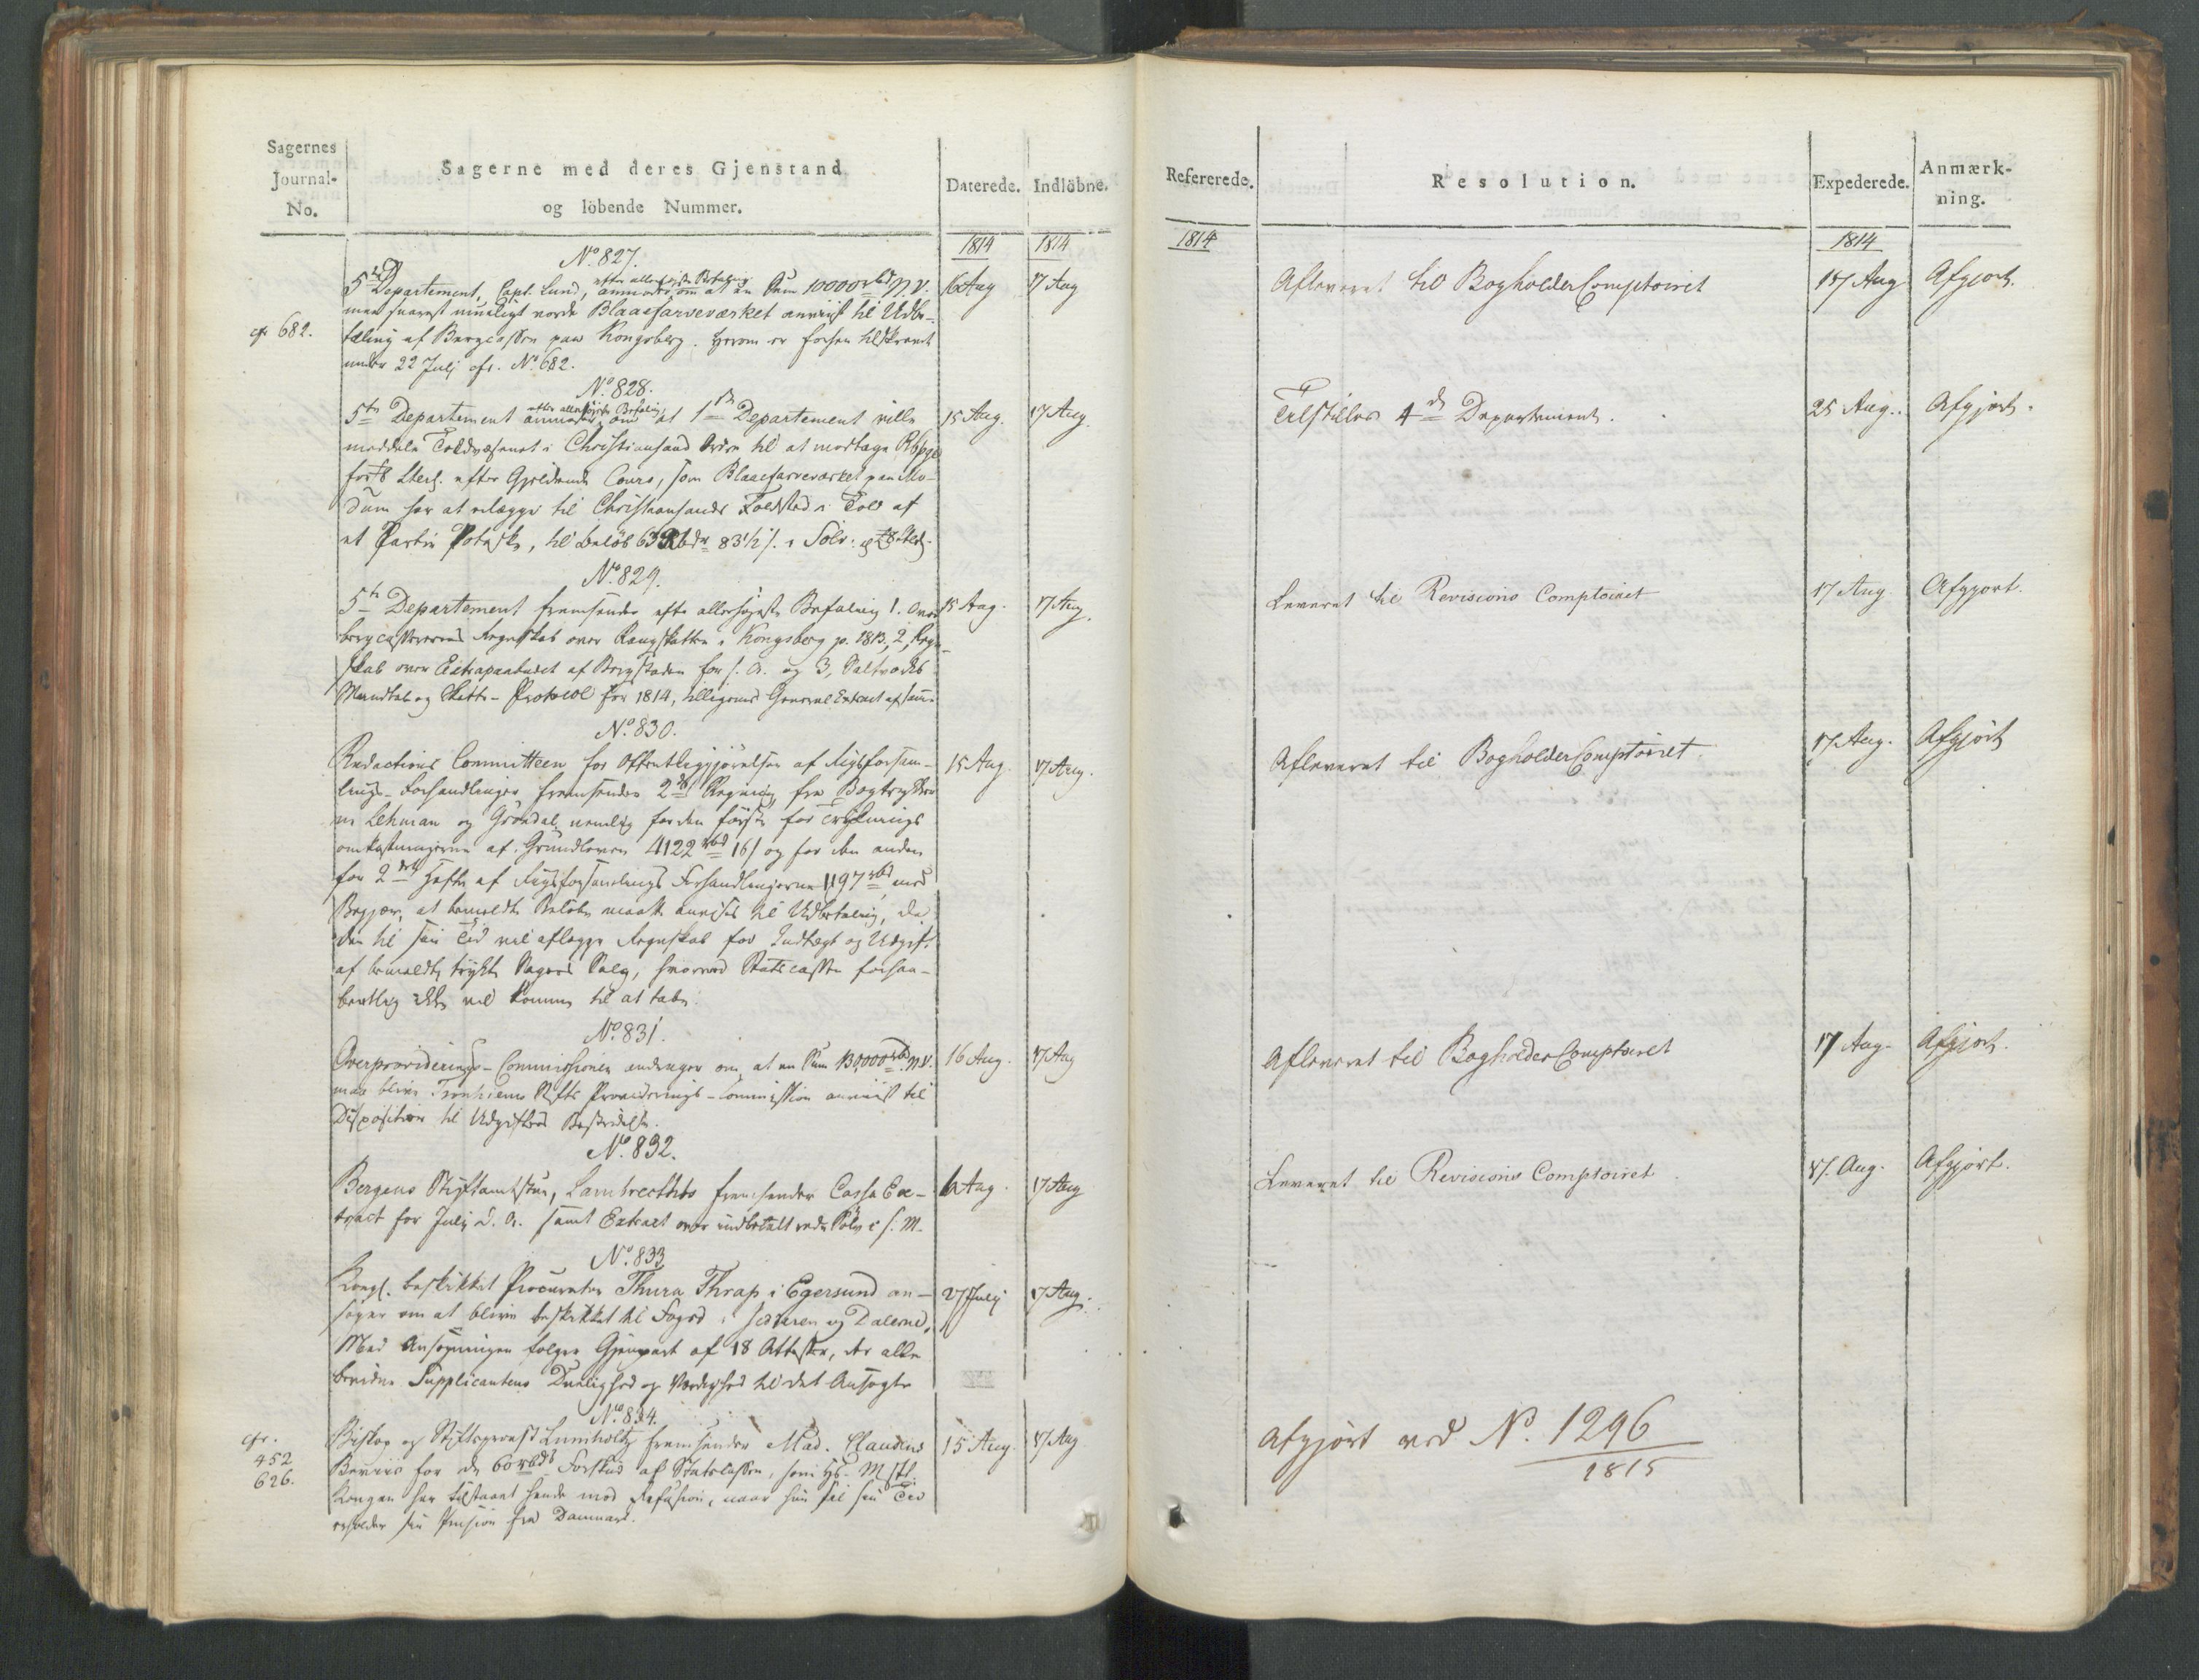 Sagernes
Journal-
No.
Sagerne med deres Gjenstand
og löbende Nummer.
Daterede.
Indlöbne.
1814
1814
No. 827.
5te Departement, Capt. Lund, efter allerhöjeste Befaling anmoder om at en Sum 10000 rbd N.V.
med snarest mueligt vorde Blaafarveværket anviist til Udbe-
taling af Bergcassen paa Kongsberg. Herom er forhen tilskrevet
under 22 Julj cfr. No. 682.
cfr 682.
16 Aug
17 Aug
No. 828.
5te Departement efter allerhöjeste Befaling anmoder om at 1ste Departement ville
meddele Toldvæsenet i Christiansand Ordre til at modtage Rbpge
for Sterl. efter Gjeldende Cours, som Blaafarveværket paa Mo-
dum har at erlægge til Christiansands Toldsted i Told af
et Partie Potaske, til Beløb 83 1/2 s. i Sölv
15 Aug.
17 Aug.
No. 829.
5te Departement fremsender efter allerhöjeste Befaling 1. Over
bergcasserernes Regnskab over Rangskatten i Kongsberg p. 1813, 2, Regn-
skab over Extrapaabudet af Bergstaden for s. A. og 3, Saltværkets
Mandtal og Skatte-Protocol for 1814, tilligemed General Extract af samme
15 Aug.
17 Aug.
No. 830.
Redactions Committeen for Offentliggjörelsen af Rigsforsam-
lings-Forhandlinger fremsender 2de Regning fra Bogtrykker
ne Lehman og Gröndal, nemlig for den förste for Tryknings
omkostningerne af Grundloven 4122 rbd 16 s og for den anden
for 2det Hefte af Rigsforsamlings Forhandlingerne 1197 rbd med
Begjær, at bemeldte Belöb maatte anvises til Udbetaling, da
den til sin Tid vil aflegge Regnskab for Indtægt og Udgift
af bemeldte trykte Sagers Salg, hvorved Statscassen forhaa-
bentlig ikke vil komme til at tabe.
15 Aug.
17 Aug.
No. 831.
Overproviderings-Commissionen andrager om, at en Sum 130,000 rbd N.V.
maa blive Trondhiems Stifts Providerings-Commission anviist til
Disposition til Udgifters Bestridelse.
16 Aug.
17 Aug
No. 832.
Bergens Stiftamtstue, Lambrechts fremsender Cassa Ex-
tract for Julj d. A. samt Extract over indbetalt rede Sölv i s. M.
6 Aug.
17 Aug
No. 833
Kongl. beskikket Procurator Thura Thrap i Egersund an-
söger om at blive beskikket til Foged i Jedderen og Dalerne,
Med Ansögningen fölger Gjenpart af 18 Attester, der alle
bevidne Supplicantens Duelighed og Værdighed til det Ansögte
27 Julj
17 Aug.
No. 834.
Biskop og Stiftsprovst Lumholtz fremsender Mad. Claudius
Beviis for de 60 rbds Forskud af Statscassen, som Hs. Mjst.
Kongen har tilstaaet hende mod Refusion, naar hun til sin Tid
erholder sin Pension fra Danmark.
cfr.
452
626.
15 Aug.
17 Aug
Refererede.
Resolution.
Expederede.
Anmærk-
ning.
1814
1814
Afleveret til BogholderComptoiret
17 Aug
Afgjort.
Tilstilles 4de Departement.
25 Aug.
Afgjort.
Leveret til Revisions Comptoiret
17 Aug
Afgjort.
Afleveret til BogholderComptoiret.
17 Aug.
Afgjort
Afleveret til BogholderComptoiret
17 Aug.
Afgjort.
Leveret til Revisions Comptoiret
17. Aug.
Afgjort.
Afgjort ved No. 1296
1815